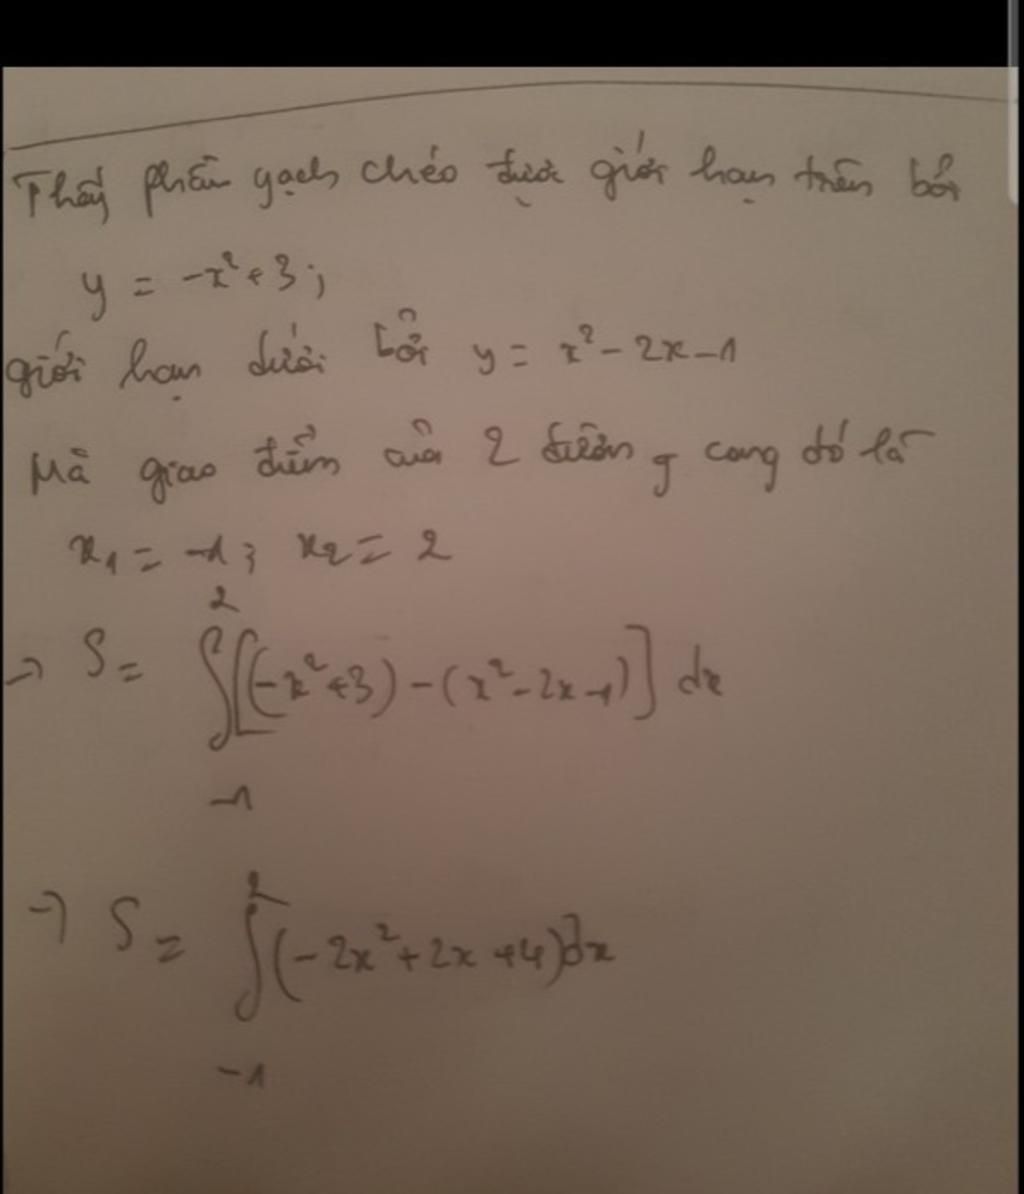 Thấy phần gạch chéo được giới hạn trên bởi
y = -x² + 3 ;
giới hạn dưới bởi y = x² - 2x - 1
Mà giao điểm của 2 đường cong đó là
x₁ = -1 ; x₂ = 2
→ S = ∫₋₁² [(-x² + 3) - (x² - 2x - 1)] dx
→ S = ∫₋₁² (-2x² + 2x + 4) dx